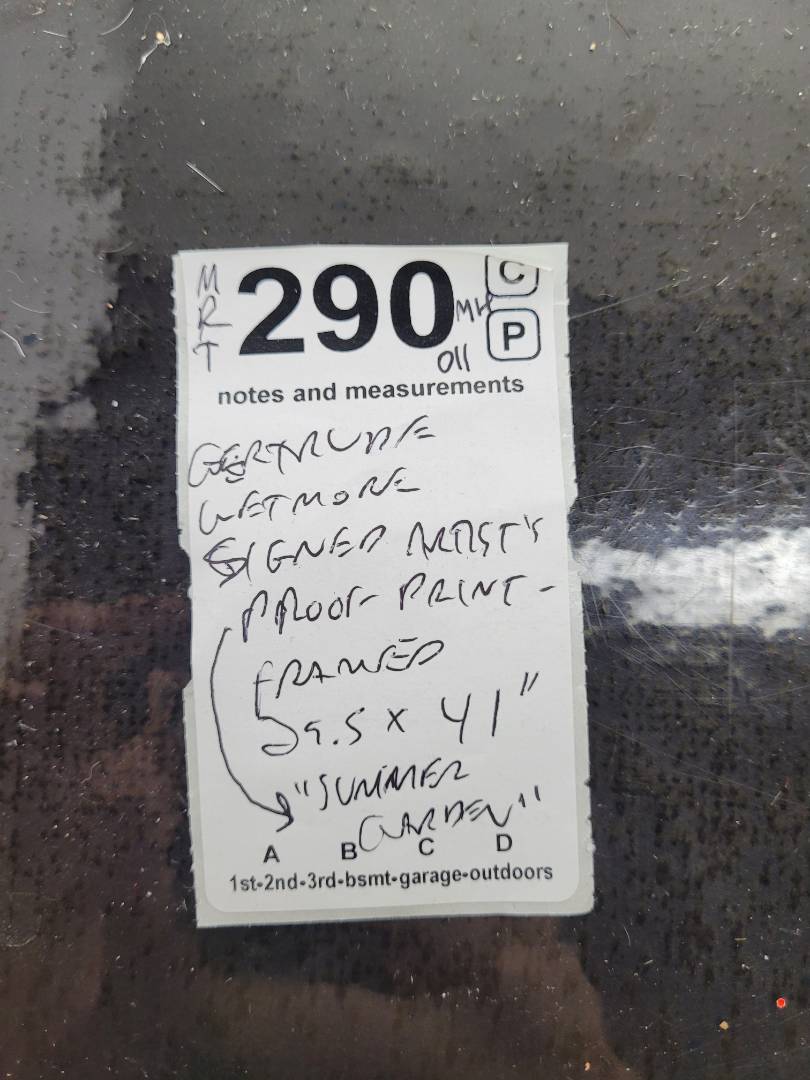 MRT 290 MH C
011 P
notes and measurements
GERTRUDE
WETMORE
SIGNED ARTIST'S
PROOF PRINT -
FRAMED
29.5 x 41"
"SUMMER
GARDEN"
A B C D
1st-2nd-3rd-bsmt-garage-outdoors